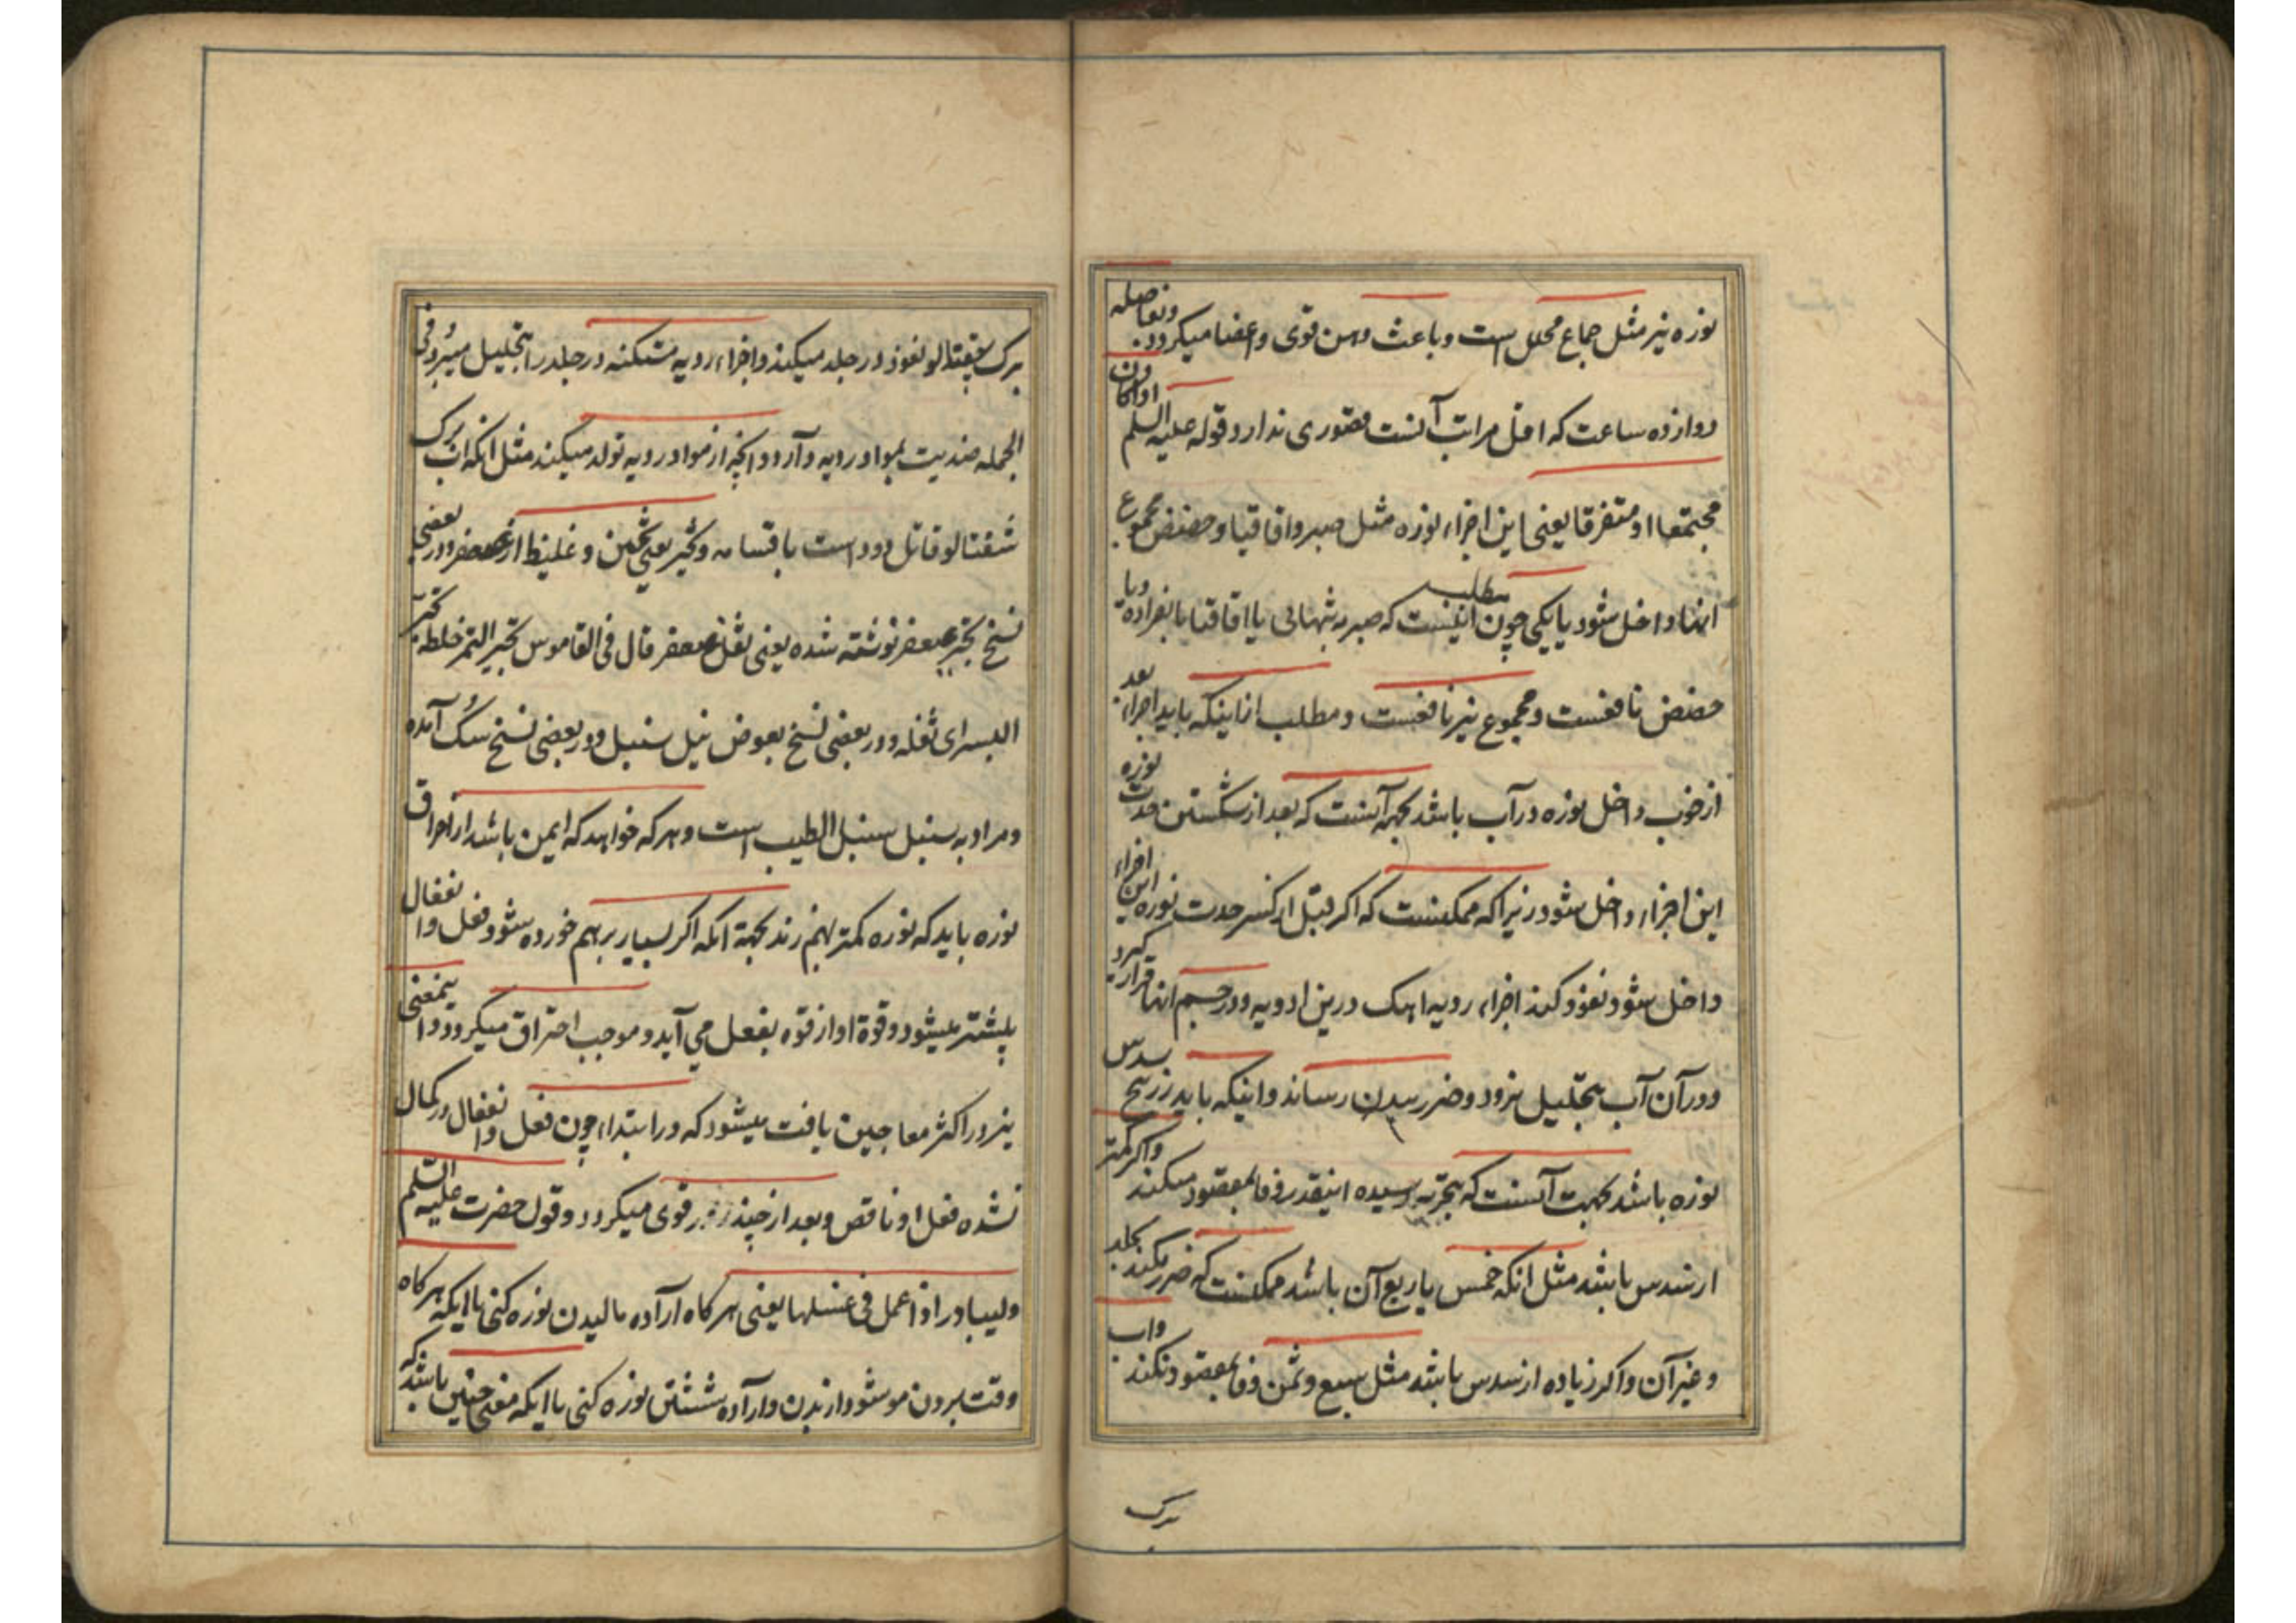 نوزه نیز مثل جماع محلل است و باعث وهن قوی و اعضا میکردد. و تفاصله
دوازده ساعت که اقل مراتب آنست قصوری ندارد و قوله علیه السلم او ان کان
مجتمعا او متفرقا یعنی این اجزاء نوزه مثل صبر و اقاقیا و حضض مجموع
انها داخل شود یا یکی چون مطلب اینست که صبر به تنهائی یا اقاقیا بانفراده و یا
حضض نافعست و مجموع نیز نافعست و مطلب از اینکه باید اجزاء بعد
از خوب داخل نوزه در آب باشد بجهة آنست که بعد از شکستن حدت نوزه
این اجزاء داخل شود زیرا که ممکنست که اکر قبل از کسر حدت نوزه این اجزاء
داخل شود و نفوذ کند اجزاء ردیه اهک درین ادویه و در جسم انها قرار کیرد
و در آن آب بتحلیل نرود و ضرر ببدن رساند و اینکه باید زرنیخ سدس
نوزه باشد بجهت آنست که بتجربه رسیده اینقدر وفا بمقصود میکند و اکر کمتر
از سدس باشد مثل انکه خمس یا ربع آن باشد ممکنست که ضرر کند بجلد
و غیر آن و اکر زیاده از سدس باشد مثل سبع و ثمن وفا بمقصود نکند و اب
برک
برک شفتالو نفوذ در جلد میکند و اجزاء ردیه متمکنه در جلد را بتحلیل میبرد و فی
الجمله ضدیت بمواد ردیه و آرد و انچه از مواد ردیه تولد میکند مثل انکه اب برک
شفتالو قاتل دود است باقسامه و ثجیر یعنی ثخین و غلیظ از عصفر و در بعضی
نسخ بجیر عصفر نوشته شده یعنی ثفل عصفر قال فی القاموس ثجیر التمر خلطه
البسر ای ثفله و در بعضی نسخ بعوض نیل سنبل و در بعضی نسخ سُک آمده
و مراد به سنبل سنبل الطیب است و هر که خواهد که ایمن باشد از احراق
نوزه باید که نوزه کمتر بهم زند بجهة انکه اکر بسیار بر هم خورده شود فعل و انفعال
بیشتر میشود و قوة او از قوه بفعل می آید و موجب احتراق میکردد و اینمعنی
نیز در اکثر معاجین یافت میشود که در ابتداء چون فعل و انفعال در کمال
نشده فعل او ناقص و بعد از چند روز قوی میکردد و قول حضرت علیه السلم
ولیبادر اذا عمل فی غسلها یعنی هر کاه اراده مالیدن نوزه کنی یا اینکه هر کاه
وقت بردن مو شود از بدن و اراده شستن نوزه کنی یا اینکه معنی چنین باشد که